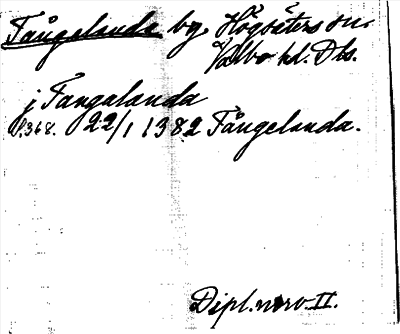 Tångelanda by, Högsäters sn.
Valbo hd. Dls.
j Tangalanda
s. 368. 22/1 1382 Tångelanda.
Dipl. norv. II.